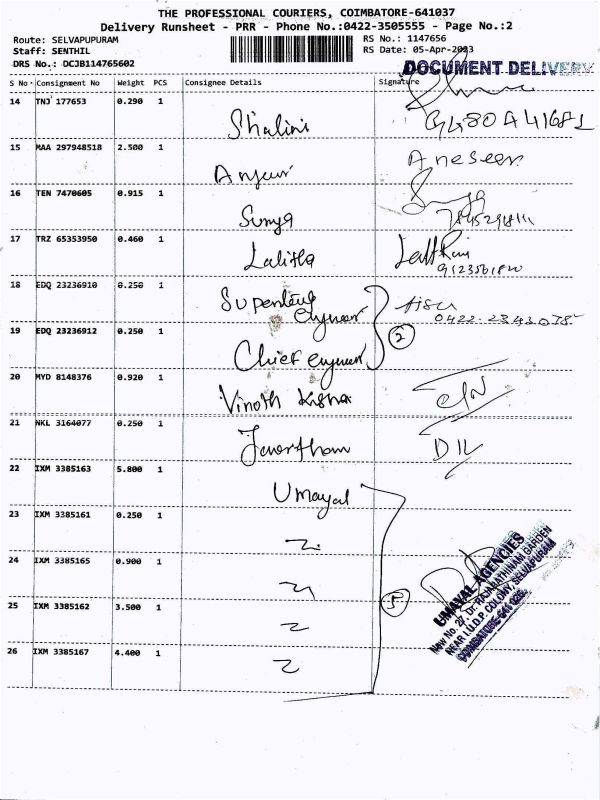 THE PROFESSIONAL COURIERS, COIMBATORE-641037
Delivery Runsheet - PRR - Phone No.:0422-3505555 - Page No.:2
Route: SELVAPUPURAM RS No.: 1147656
Staff: SENTHIL RS Date: 05-Apr-2023
DRS No.: DCJB114765602 DOCUMENT DELIVERY
S No Consignment No Weight PCS Consignee Details Signature
14 TNJ 177653 0.290 1 Shalini
15 MAA 297948518 2.500 1
16 TEN 7470605 0.915 1 Surya
17 TRZ 65353950 0.460 1 Lalitha
18 EDQ 23236910 0.250 1
19 EDQ 23236912 0.250 1 Chief 2
20 MYD 8148376 0.920 1 Vinoth
21 NKL 3164077 0.250 1
22 IXM 3385163 5.800 1 Umayal
23 IXM 3385161 0.250 1
24 IXM 3385165 0.900 1
25 IXM 3385162 3.500 1 5
26 IXM 3385167 4.400 1
UMAYAL AGENCIES
New No. 27, Dr. RAJARATHINAM GARDEN
NEAR I.U.D.P. COLONY, SELVAPURAM
COIMBATORE